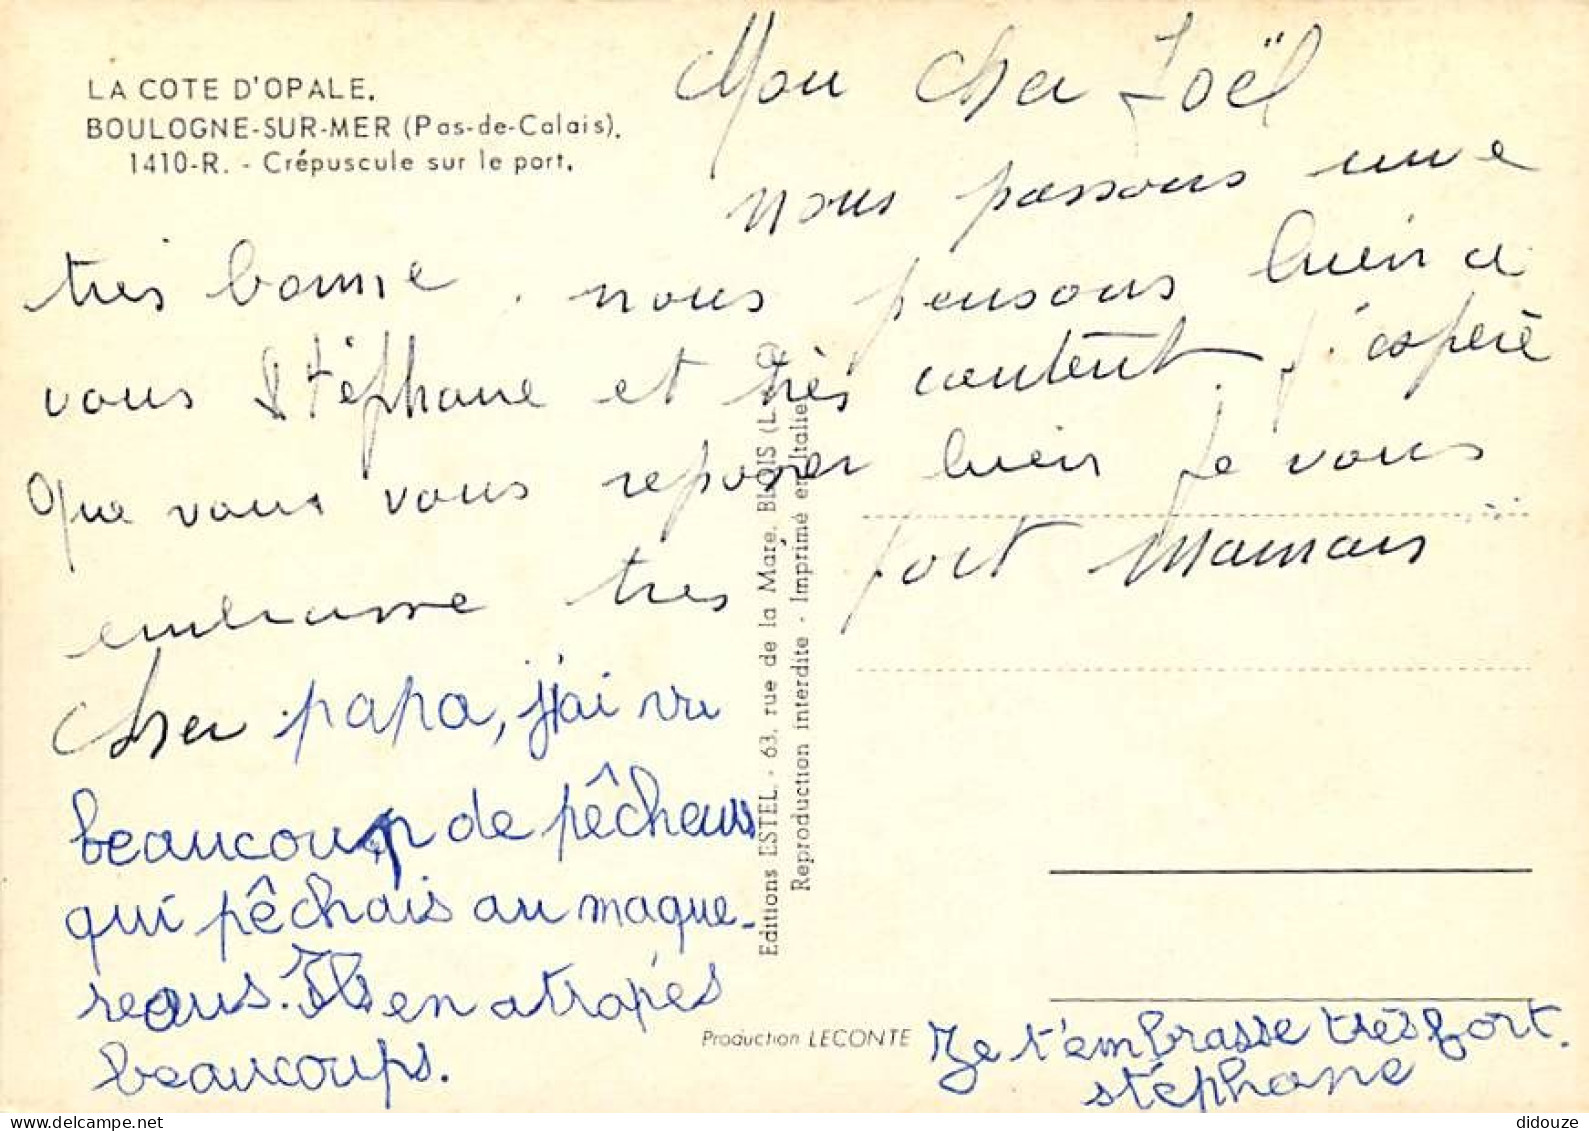 LA COTE D'OPALE.
BOULOGNE-SUR-MER (Pas-de-Calais).
1410-R. - Crépuscule sur le port.
Mon cher Joël
nous passons une
très bonne . nous pensons bien a
vous Stéphane et très content. j'espère
Que vous vous reposer bien je vous
embrasse tres fort Maman
cher papa, j'ai vu
beaucoup de pêcheurs
qui pêchais au maque-
reaus. Ils en atrapés
beaucoups.
Je t'embrasse très fort.
stéphane
Editions ESTEL. - 63, rue de la Mare. BLOIS (L.
Reproduction interdite - Imprimé en Italie
Production LECONTE
didouze